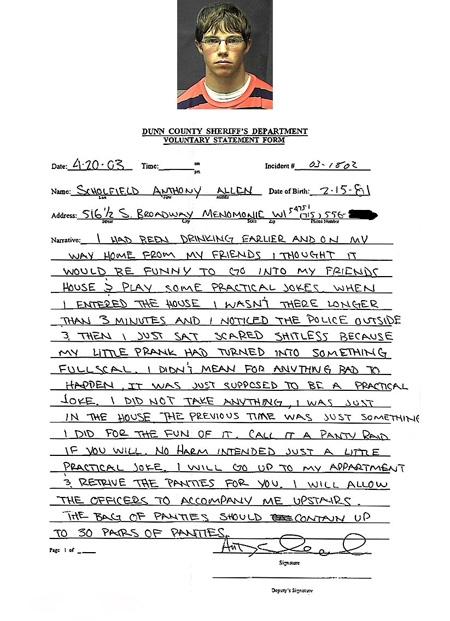 DUNN COUNTY SHERIFF'S DEPARTMENT
VOLUNTARY STATEMENT FORM
Date: 4-20-03 Time: am pm Incident # 03-1802
Name: SCHOLFIELD ANTHONY ALLEN Date of Birth: 2-15-81
Last First Middle
Address: 516 1/2 S. BROADWAY MENOMONIE WI 54751 (715) 556-
Street City State Zip Phone Number
Narrative: I HAD BEEN DRINKING EARLIER AND ON MY
WAY HOME FROM MY FRIENDS I THOUGHT IT
WOULD BE FUNNY TO GO INTO MY FRIENDS
HOUSE & PLAY SOME PRACTICAL JOKES. WHEN
I ENTERED THE HOUSE I WASN'T THERE LONGER
THAN 3 MINUTES AND I NOTICED THE POLICE OUTSIDE
& THEN I JUST SAT SCARED SHITLESS BECAUSE
MY LITTLE PRANK HAD TURNED INTO SOMETHING
FULLSCAL. I DIDN'T MEAN FOR ANYTHING BAD TO
HAPPEN, IT WAS JUST SUPPOSED TO BE A PRACTICAL
JOKE. I DID NOT TAKE ANYTHING, I WAS JUST
IN THE HOUSE. THE PREVIOUS TIME WAS JUST SOMETHING
I DID FOR THE FUN OF IT. CALL IT A PANTY RAID
IF YOU WILL. NO HARM INTENDED JUST A LITTLE
PRACTICAL JOKE. I WILL GO UP TO MY APPARTMENT
& RETRIVE THE PANTIES FOR YOU. I WILL ALLOW
THE OFFICERS TO ACCOMPANY ME UPSTAIRS.
THE BAG OF PANTIES SHOULD CONTAIN UP
TO 30 PAIRS OF PANTIES.
Page 1 of
Signature
Deputy's Signature